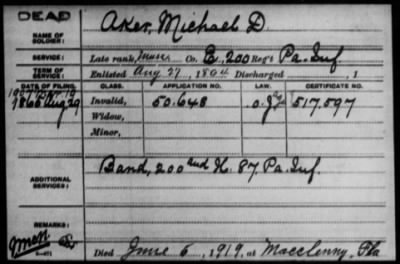 DEAD
NAME OF SOLDIER: Aker, Michael D.
SERVICE: Late rank, Musc Co. E, 200 Reg't Pa. Inf.
TERM OF SERVICE: Enlisted Aug 27, 1864 Discharged , 1
DATE OF FILING. CLASS. APPLICATION NO. LAW. CERTIFICATE NO.
1865 Aug 29 Invalid, 50.648 517,597
Widow,
Minor,
ADDITIONAL SERVICES: Band, 200 and H. 87 Pa. Inf.
REMARKS:
Died June 5, 1919, at Macclenny, Fla